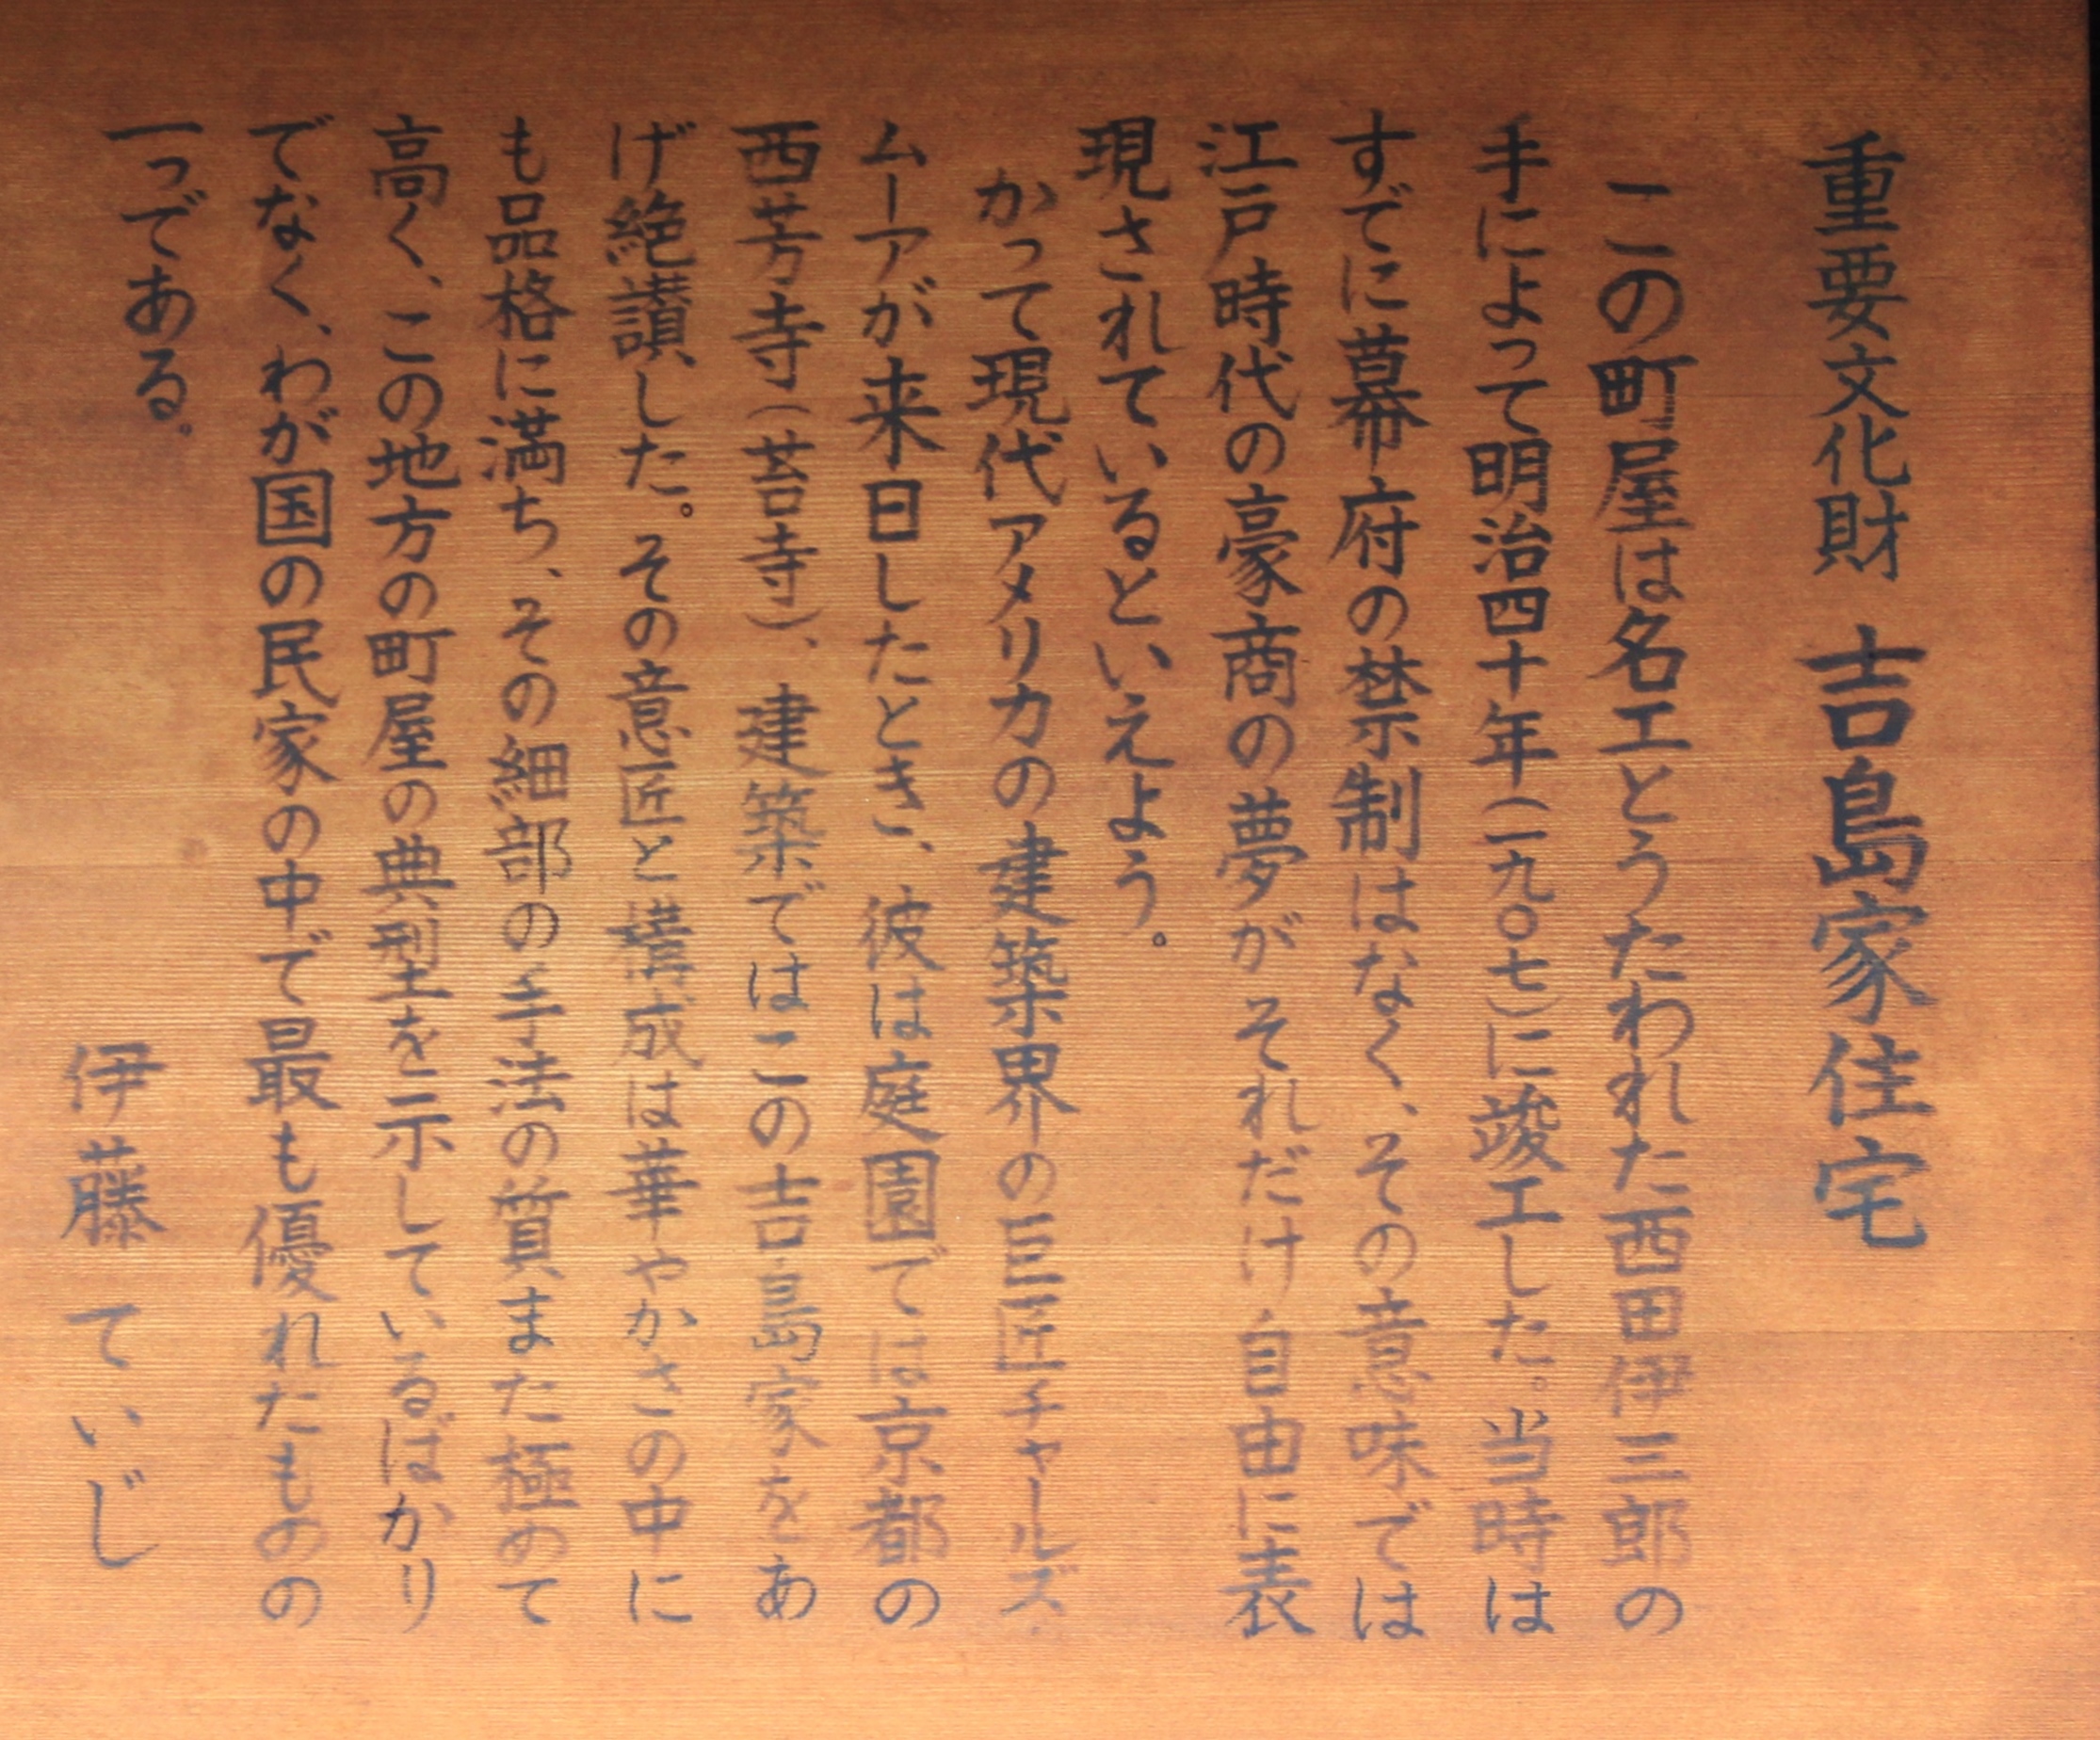 重要文化財 吉島家住宅
この町屋は名工とうたわれた西田伊三郎の
手によって明治四十年(一九〇七)に竣工した。当時は
すでに幕府の禁制はなく、その意味では
江戸時代の豪商の夢がそれだけ自由に表
現されているといえよう。
かって現代アメリカの建築界の巨匠チャールズ・
ムーアが来日したとき、彼は庭園では京都の
西芳寺(苔寺)、建築ではこの吉島家をあ
げ絶讃した。その意匠と構成は華やかさの中に
も品格に満ち、その細部の手法の質また極めて
高く、この地方の町屋の典型を示しているばかり
でなく、わが国の民家の中で最も優れたものの
一つである。
伊藤ていじ